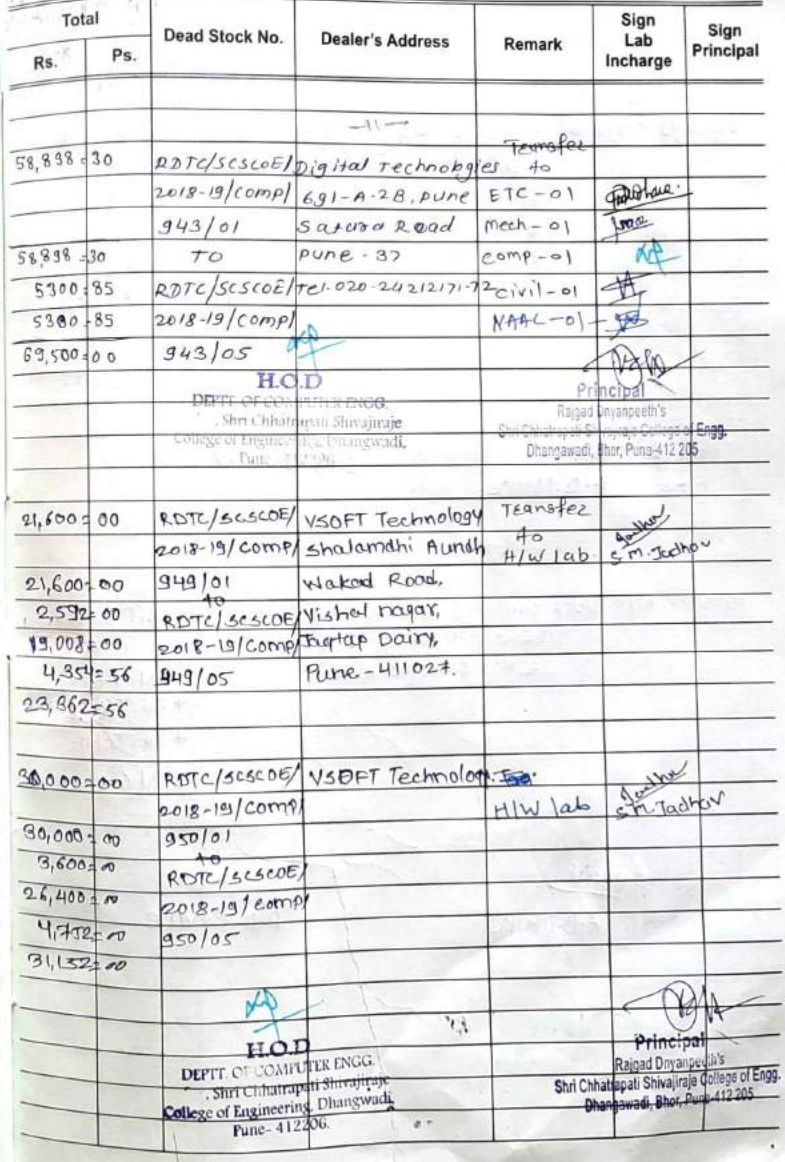 Total Dead Stock No. Dealer's Address Remark Sign Lab Incharge Sign Principal
Rs. Ps.
-11-
Transfer
58,898=30 RDTC/SCSCOE/ Digital Technologies to
2018-19/Comp/ 691-A-2B, Pune ETC-01
943/01 Satara Road Mech-01
58,898=30 TO Pune-37 Comp-01
5300=85 RDTC/SCSCOE/ Tel-020-24212171-72 Civil-01
5300=85 2018-19/Comp/ NAAC-01
69,500=00 943/05
H.O.D
DEPTT. OF COMPUTER ENGG.
Shri Chhatrapati Shivajiraje
College of Engineering, Dhangwadi,
Pune - 412206.
Principal
Rajgad Dnyanpeeth's
Shri Chhatrapati Shivajiraje College of Engg.
Dhangawadi, Bhor, Pune-412 205
21,600=00 RDTC/SCSCOE/ VSOFT Technology Transfer
2018-19/Comp/ Shalamdhi Aundh to H/W lab. S.M. Jadhav
21,600=00 949/01 Wakad Road,
to
2,592=00 RDTC/SCSCOE/ Vishal nagar,
19,008=00 2018-19/Comp/ Jagtap Dairy,
4,354=56 949/05 Pune-411027.
23,362=56
30,000=00 RDTC/SCSCOE/ VSOFT Technology
2018-19/Comp/ H/W lab S.M. Jadhav
30,000=00 950/01
to
3,600=00 RDTC/SCSCOE/
26,400=00 2018-19/Comp/
4,752=00 950/05
31,152=00
H.O.D
DEPTT. OF COMPUTER ENGG.
Shri Chhatrapati Shivajiraje
College of Engineering, Dhangwadi,
Pune- 412206.
Principal
Rajgad Dnyanpeeth's
Shri Chhatrapati Shivajiraje College of Engg.
Dhangawadi, Bhor, Pune-412 205